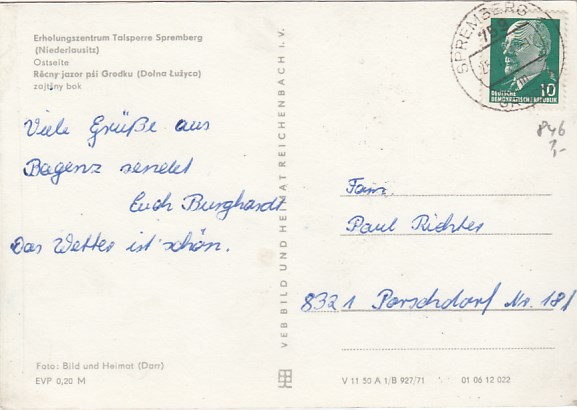 Erholungszentrum Talsperre Spremberg
(Niederlausitz)
Ostseite
Rěcny jazor pśi Grodku (Dolna Łužyca)
zajtšny bok
Viele Grüße aus
Bagenz sendet
Euch Burghardt
Das Wetter ist schön.
Foto: Bild und Heimat (Darr)
EVP 0,20 M
VEB BILD UND HEIMAT REICHENBACH i. V.
SPREMBERG
DEUTSCHE
DEMOKRATISCHE REPUBLIK
10
846
Fam.
Paul Richter
8321 Porschdorf Nr. 18f
V 11 50 A 1/B 927/71 01 06 12 022